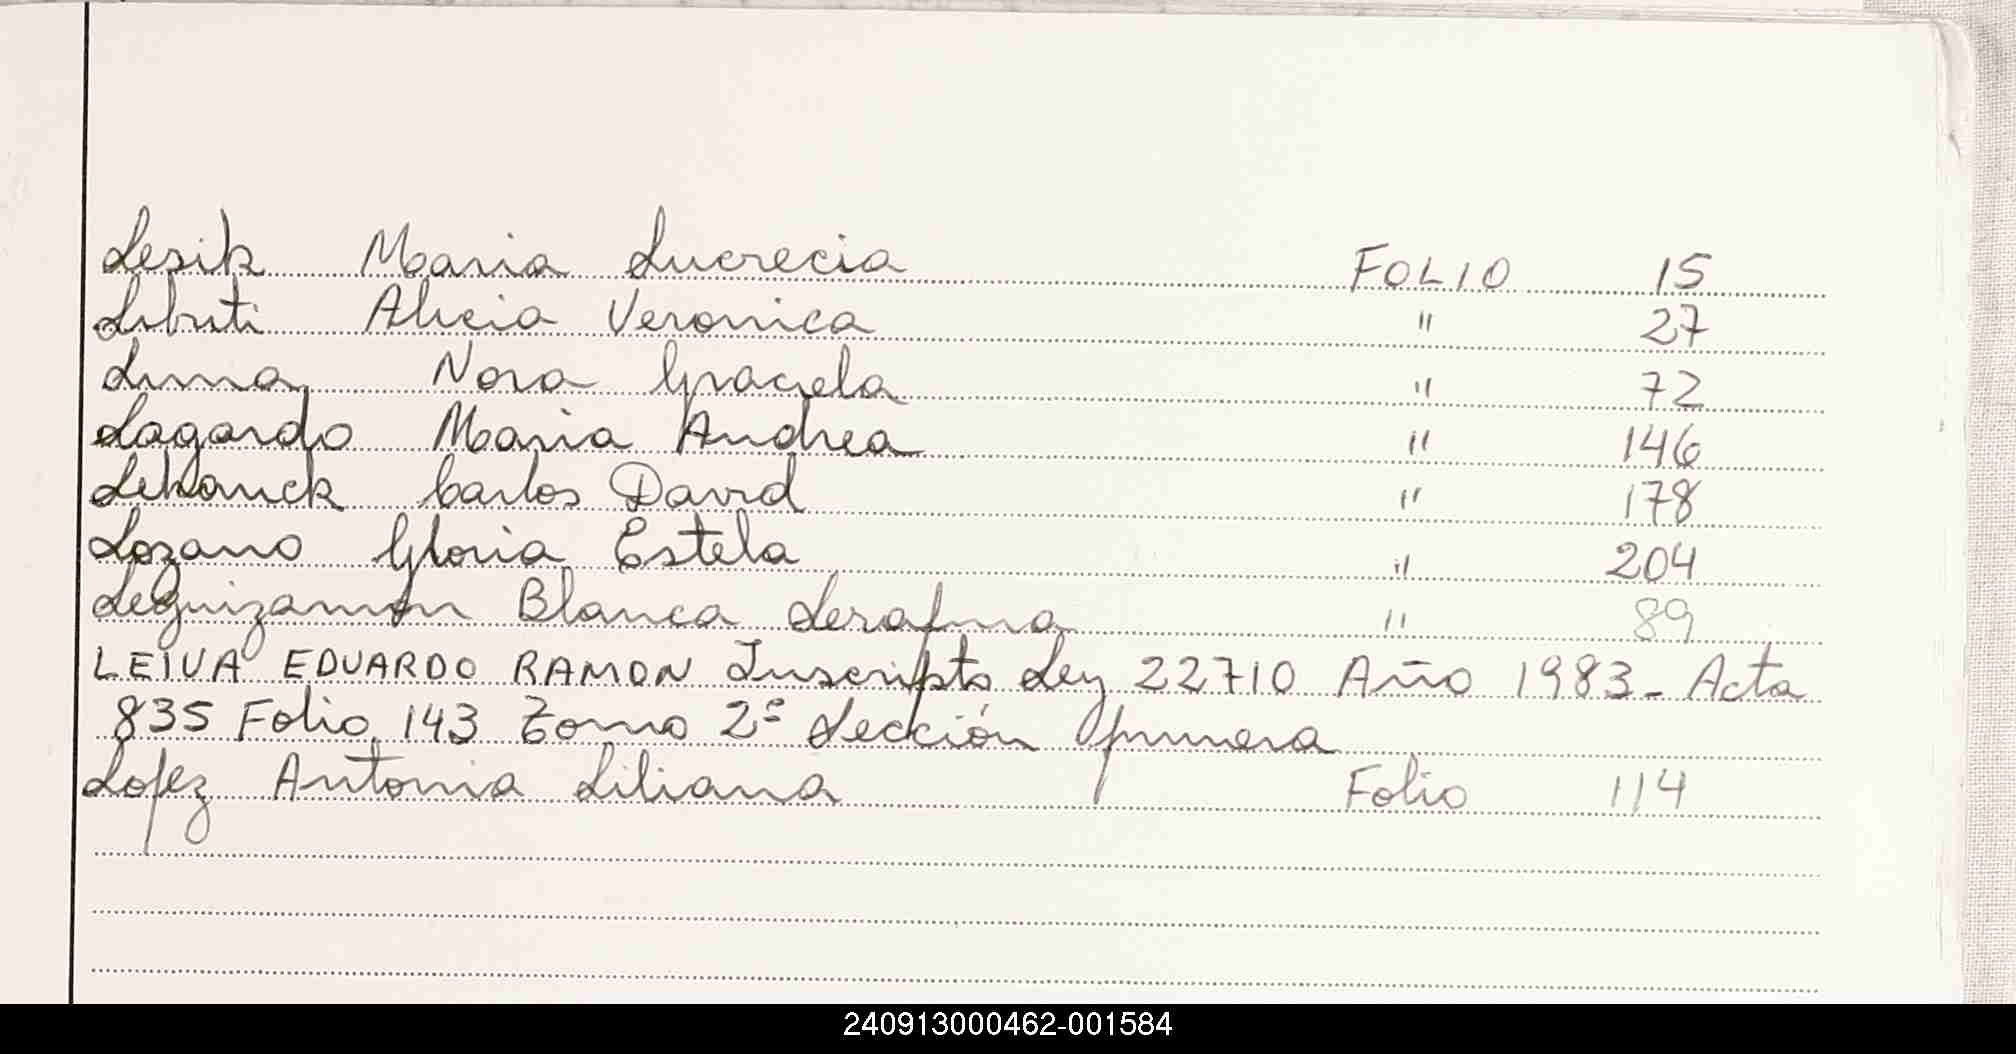 Lesik Maria Lucrecia FOLIO 15
Libuti Alicia Veronica " 27
Lima Nora Graciela " 72
Lagardo Maria Andrea " 146
Lekanck Carlos David " 178
Lozano Gloria Estela " 204
Leguizamón Blanca Serafina " 89
LEIVA EDUARDO RAMON Inscripto Ley 22710 Año 1983- Acta
835 Folio 143 Tomo 2º Sección primera
Lopez Antonia Liliana Folio 114
240913000462-001584